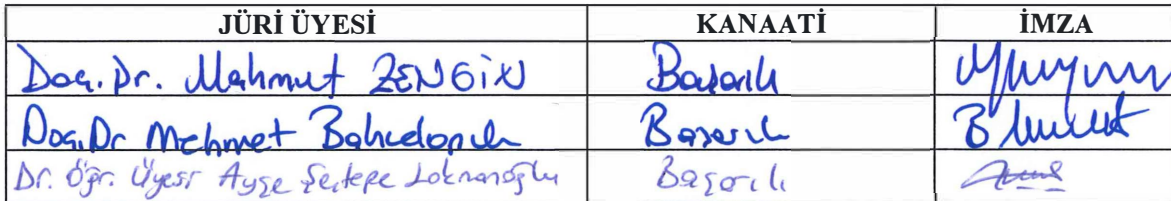 JÜRİ ÜYESİ KANAATİ İMZA
Doç. Dr. Mahmut ZENGİN Başarılı
Doç. Dr Mehmet Başarılı
Dr. Öğr. Üyesi Ayşe Şentepe Lokmanoğlu Başarılı